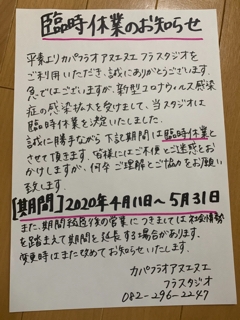 臨時休業のお知らせ
平素よりカパフラオアヌエヌエ フラスタジオを
ご利用いただき、誠にありがとうございます。
急ではございますが、新型コロナウィルス感染
症の感染拡大を受けまして、当スタジオは
臨時休業を決定いたしました。
誠に勝手ながら下記期間は臨時休業と
させて頂きます。皆様にはご不便とご迷惑をお
かけしますが、何卒ご理解とご協力をお願い
致します。
【期間】2020年4月11日〜5月31日
また、期間経過後の営業につきましては社会情勢
を踏まえて期間を延長する場合があります。
変更時はまた改めてお知らせいたします。
カパフラオアヌエヌエ
フラスタジオ
082-296-2247